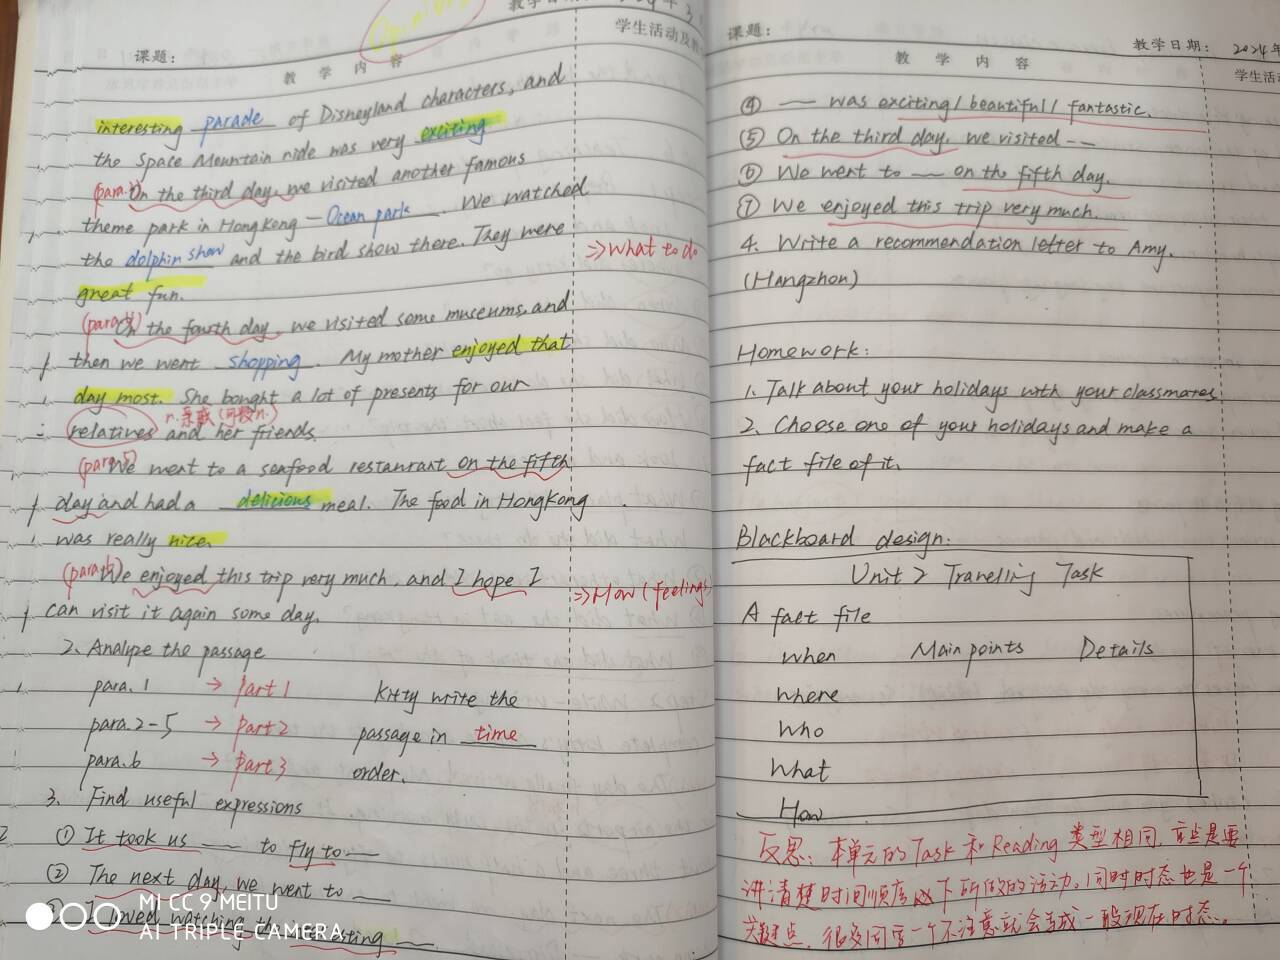 课题：
教学日期：
2024年3.1
教 学 内 容
学生活动及教
interesting parade of Disneyland characters, and
the Space Mountain ride was very exciting
(para.3) On the third day, we visited another famous
theme park in HongKong — Ocean park. We watched
the dolphin show and the bird show there. They were
⇒ What to do
great fun.
(para.4) On the fourth day, we visited some museums, and
then we went shopping. My mother enjoyed that
day most. She bought a lot of presents for our
n.亲戚(可数n.)
relatives and her friends.
(para.5) We went to a seafood restaurant on the fifth
day and had a delicious meal. The food in HongKong
was really nice.
(para.6) We enjoyed this trip very much, and I hope I
⇒ How (feelings)
can visit it again some day.
2. Analyze the passage
para.1 → Part 1 Kitty write the
para.2-5 → Part 2 passage in time
para.6 → Part 3 order.
3. Find useful expressions
① It took us — to fly to —
② The next day, we went to —
MI CC 9 MEITU
I loved watching the interesting —.
AI TRIPLE CAMERA
课题：
教学日期： 2024年
教 学 内 容
学生活
④ — was exciting / beautiful / fantastic.
⑤ On the third day, we visited --
⑥ We went to — on the fifth day.
⑦ We enjoyed this trip very much.
4. Write a recommendation letter to Amy.
(Hangzhou)
Homework:
1. Talk about your holidays with your classmates
2. Choose one of your holidays and make a
fact file of it.
Blackboard design:
Unit 2 Travelling Task
A fact file
when Main points Details
where
who
what
How
反思：本单元的Task和Reading类型相同，都是要
讲清楚时间顺序以下所做的活动。同时时态也是一个
关键点，很多同学一个不注意就会写成一般现在时态。